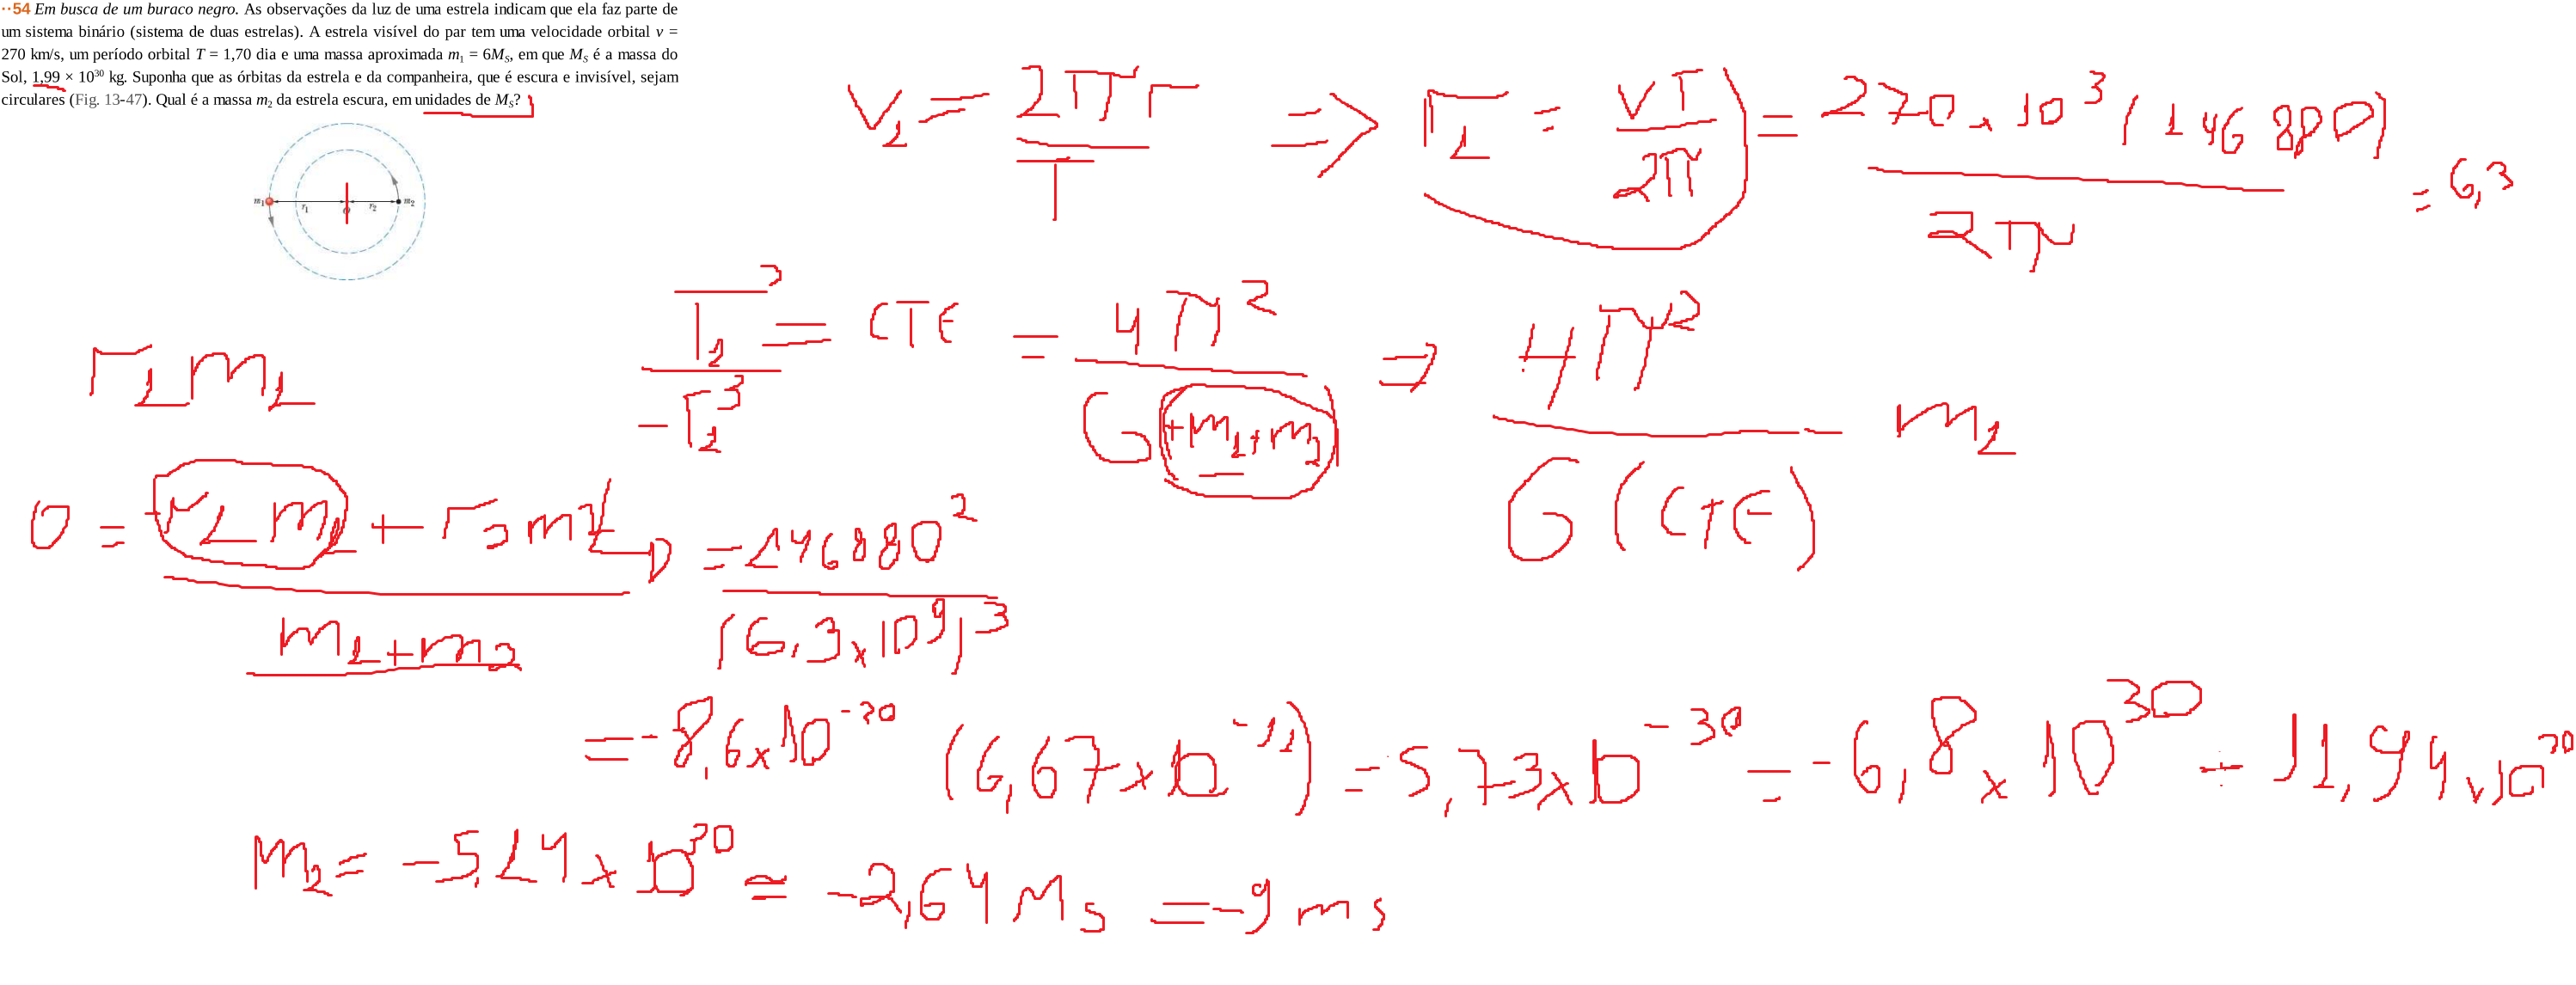 ··54 Em busca de um buraco negro. As observações da luz de uma estrela indicam que ela faz parte de
um sistema binário (sistema de duas estrelas). A estrela visível do par tem uma velocidade orbital v =
270 km/s, um período orbital T = 1,70 dia e uma massa aproximada m₁ = 6Mₛ, em que Mₛ é a massa do
Sol, 1,99 × 10³⁰ kg. Suponha que as órbitas da estrela e da companheira, que é escura e invisível, sejam
circulares (Fig. 13-47). Qual é a massa m₂ da estrela escura, em unidades de Mₛ?
m₁ r₁ O r₂ m₂
V₁ = 2πr / T ⇒ r₁ = VT / 2π = 270 x 10³ (146880) / 2π = 6,3
r₁ m₁
T₁² / -r₁³ = CTE = 4π² / G(+m₁+m₂) ⇒ 4π² / G(CTE) - m₁
0 = +r₁ m₁ + r₂ m₂ / m₁+m₂
= 146880² / (6,3x10⁹)³
= -8,6x10⁻²⁰ (6,67x10⁻¹¹) = -5,73x10⁻³⁰ = -6,8 x 10³⁰ ÷ 11,94x10³⁰
m₂ = -5,14 x 10³⁰ = -2,64 Ms = -9 ms